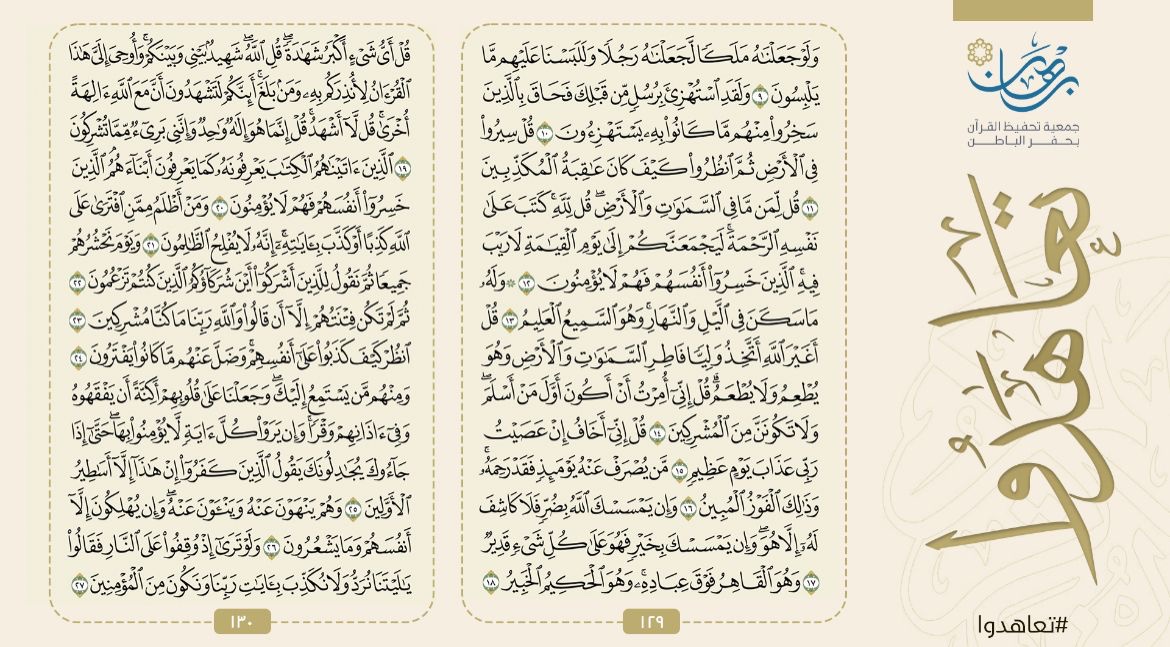 برهان
جمعية تحفيظ القرآن
بحفر الباطن
تعاهدوا
#تعاهدوا
وَلَوْ جَعَلْنَٰهُ مَلَكًا لَّجَعَلْنَٰهُ رَجُلًا وَلَلَبَسْنَا عَلَيْهِم مَّا
يَلْبِسُونَ ٩ وَلَقَدِ ٱسْتُهْزِئَ بِرُسُلٍ مِّن قَبْلِكَ فَحَاقَ بِٱلَّذِينَ
سَخِرُوا۟ مِنْهُم مَّا كَانُوا۟ بِهِۦ يَسْتَهْزِءُونَ ١٠ قُلْ سِيرُوا۟
فِى ٱلْأَرْضِ ثُمَّ ٱنظُرُوا۟ كَيْفَ كَانَ عَٰقِبَةُ ٱلْمُكَذِّبِينَ
١١ قُل لِّمَن مَّا فِى ٱلسَّمَٰوَٰتِ وَٱلْأَرْضِ ۖ قُل لِّلَّهِ ۚ كَتَبَ عَلَىٰ
نَفْسِهِ ٱلرَّحْمَةَ ۚ لَيَجْمَعَنَّكُمْ إِلَىٰ يَوْمِ ٱلْقِيَٰمَةِ لَا رَيْبَ
فِيهِ ۚ ٱلَّذِينَ خَسِرُوٓا۟ أَنفُسَهُمْ فَهُمْ لَا يُؤْمِنُونَ ١٢ ۞ وَلَهُۥ
مَا سَكَنَ فِى ٱلَّيْلِ وَٱلنَّهَارِ ۚ وَهُوَ ٱلسَّمِيعُ ٱلْعَلِيمُ ١٣ قُلْ
أَغَيْرَ ٱللَّهِ أَتَّخِذُ وَلِيًّا فَاطِرِ ٱلسَّمَٰوَٰتِ وَٱلْأَرْضِ وَهُوَ
يُطْعِمُ وَلَا يُطْعَمُ ۗ قُلْ إِنِّىٓ أُمِرْتُ أَنْ أَكُونَ أَوَّلَ مَنْ أَسْلَمَ ۖ
وَلَا تَكُونَنَّ مِنَ ٱلْمُشْرِكِينَ ١٤ قُلْ إِنِّىٓ أَخَافُ إِنْ عَصَيْتُ
رَبِّى عَذَابَ يَوْمٍ عَظِيمٍ ١٥ مَّن يُصْرَفْ عَنْهُ يَوْمَئِذٍ فَقَدْ رَحِمَهُۥ ۚ
وَذَٰلِكَ ٱلْفَوْزُ ٱلْمُبِينُ ١٦ وَإِن يَمْسَسْكَ ٱللَّهُ بِضُرٍّ فَلَا كَاشِفَ
لَهُۥٓ إِلَّا هُوَ ۖ وَإِن يَمْسَسْكَ بِخَيْرٍ فَهُوَ عَلَىٰ كُلِّ شَىْءٍ قَدِيرٌ
١٧ وَهُوَ ٱلْقَاهِرُ فَوْقَ عِبَادِهِۦ ۚ وَهُوَ ٱلْحَكِيمُ ٱلْخَبِيرُ ١٨
١٢٩
قُلْ أَىُّ شَىْءٍ أَكْبَرُ شَهَٰدَةً ۖ قُلِ ٱللَّهُ ۖ شَهِيدٌۢ بَيْنِى وَبَيْنَكُمْ ۚ وَأُوحِىَ إِلَىَّ هَٰذَا
ٱلْقُرْءَانُ لِأُنذِرَكُم بِهِۦ وَمَنۢ بَلَغَ ۚ أَئِنَّكُمْ لَتَشْهَدُونَ أَنَّ مَعَ ٱللَّهِ ءَالِهَةً
أُخْرَىٰ ۚ قُل لَّآ أَشْهَدُ ۚ قُلْ إِنَّمَا هُوَ إِلَٰهٌ وَٰحِدٌ وَإِنَّنِى بَرِىٓءٌ مِّمَّا تُشْرِكُونَ
١٩ ٱلَّذِينَ ءَاتَيْنَٰهُمُ ٱلْكِتَٰبَ يَعْرِفُونَهُۥ كَمَا يَعْرِفُونَ أَبْنَآءَهُمُ ۘ ٱلَّذِينَ
خَسِرُوٓا۟ أَنفُسَهُمْ فَهُمْ لَا يُؤْمِنُونَ ٢٠ وَمَنْ أَظْلَمُ مِمَّنِ ٱفْتَرَىٰ عَلَى
ٱللَّهِ كَذِبًا أَوْ كَذَّبَ بِـَٔايَٰتِهِۦٓ ۗ إِنَّهُۥ لَا يُفْلِحُ ٱلظَّٰلِمُونَ ٢١ وَيَوْمَ نَحْشُرُهُمْ
جَمِيعًا ثُمَّ نَقُولُ لِلَّذِينَ أَشْرَكُوٓا۟ أَيْنَ شُرَكَآؤُكُمُ ٱلَّذِينَ كُنتُمْ تَزْعُمُونَ ٢٢
ثُمَّ لَمْ تَكُن فِتْنَتُهُمْ إِلَّآ أَن قَالُوا۟ وَٱللَّهِ رَبِّنَا مَا كُنَّا مُشْرِكِينَ ٢٣
ٱنظُرْ كَيْفَ كَذَبُوا۟ عَلَىٰٓ أَنفُسِهِمْ ۚ وَضَلَّ عَنْهُم مَّا كَانُوا۟ يَفْتَرُونَ ٢٤
وَمِنْهُم مَّن يَسْتَمِعُ إِلَيْكَ ۖ وَجَعَلْنَا عَلَىٰ قُلُوبِهِمْ أَكِنَّةً أَن يَفْقَهُوهُ
وَفِىٓ ءَاذَانِهِمْ وَقْرًا ۚ وَإِن يَرَوْا۟ كُلَّ ءَايَةٍ لَّا يُؤْمِنُوا۟ بِهَا ۚ حَتَّىٰٓ إِذَا
جَآءُوكَ يُجَٰدِلُونَكَ يَقُولُ ٱلَّذِينَ كَفَرُوٓا۟ إِنْ هَٰذَآ إِلَّآ أَسَٰطِيرُ
ٱلْأَوَّلِينَ ٢٥ وَهُمْ يَنْهَوْنَ عَنْهُ وَيَنْـَٔوْنَ عَنْهُ ۖ وَإِن يُهْلِكُونَ إِلَّآ
أَنفُسَهُمْ وَمَا يَشْعُرُونَ ٢٦ وَلَوْ تَرَىٰٓ إِذْ وُقِفُوا۟ عَلَى ٱلنَّارِ فَقَالُوا۟
يَٰلَيْتَنَا نُرَدُّ وَلَا نُكَذِّبَ بِـَٔايَٰتِ رَبِّنَا وَنَكُونَ مِنَ ٱلْمُؤْمِنِينَ ٢٧
١٣٠